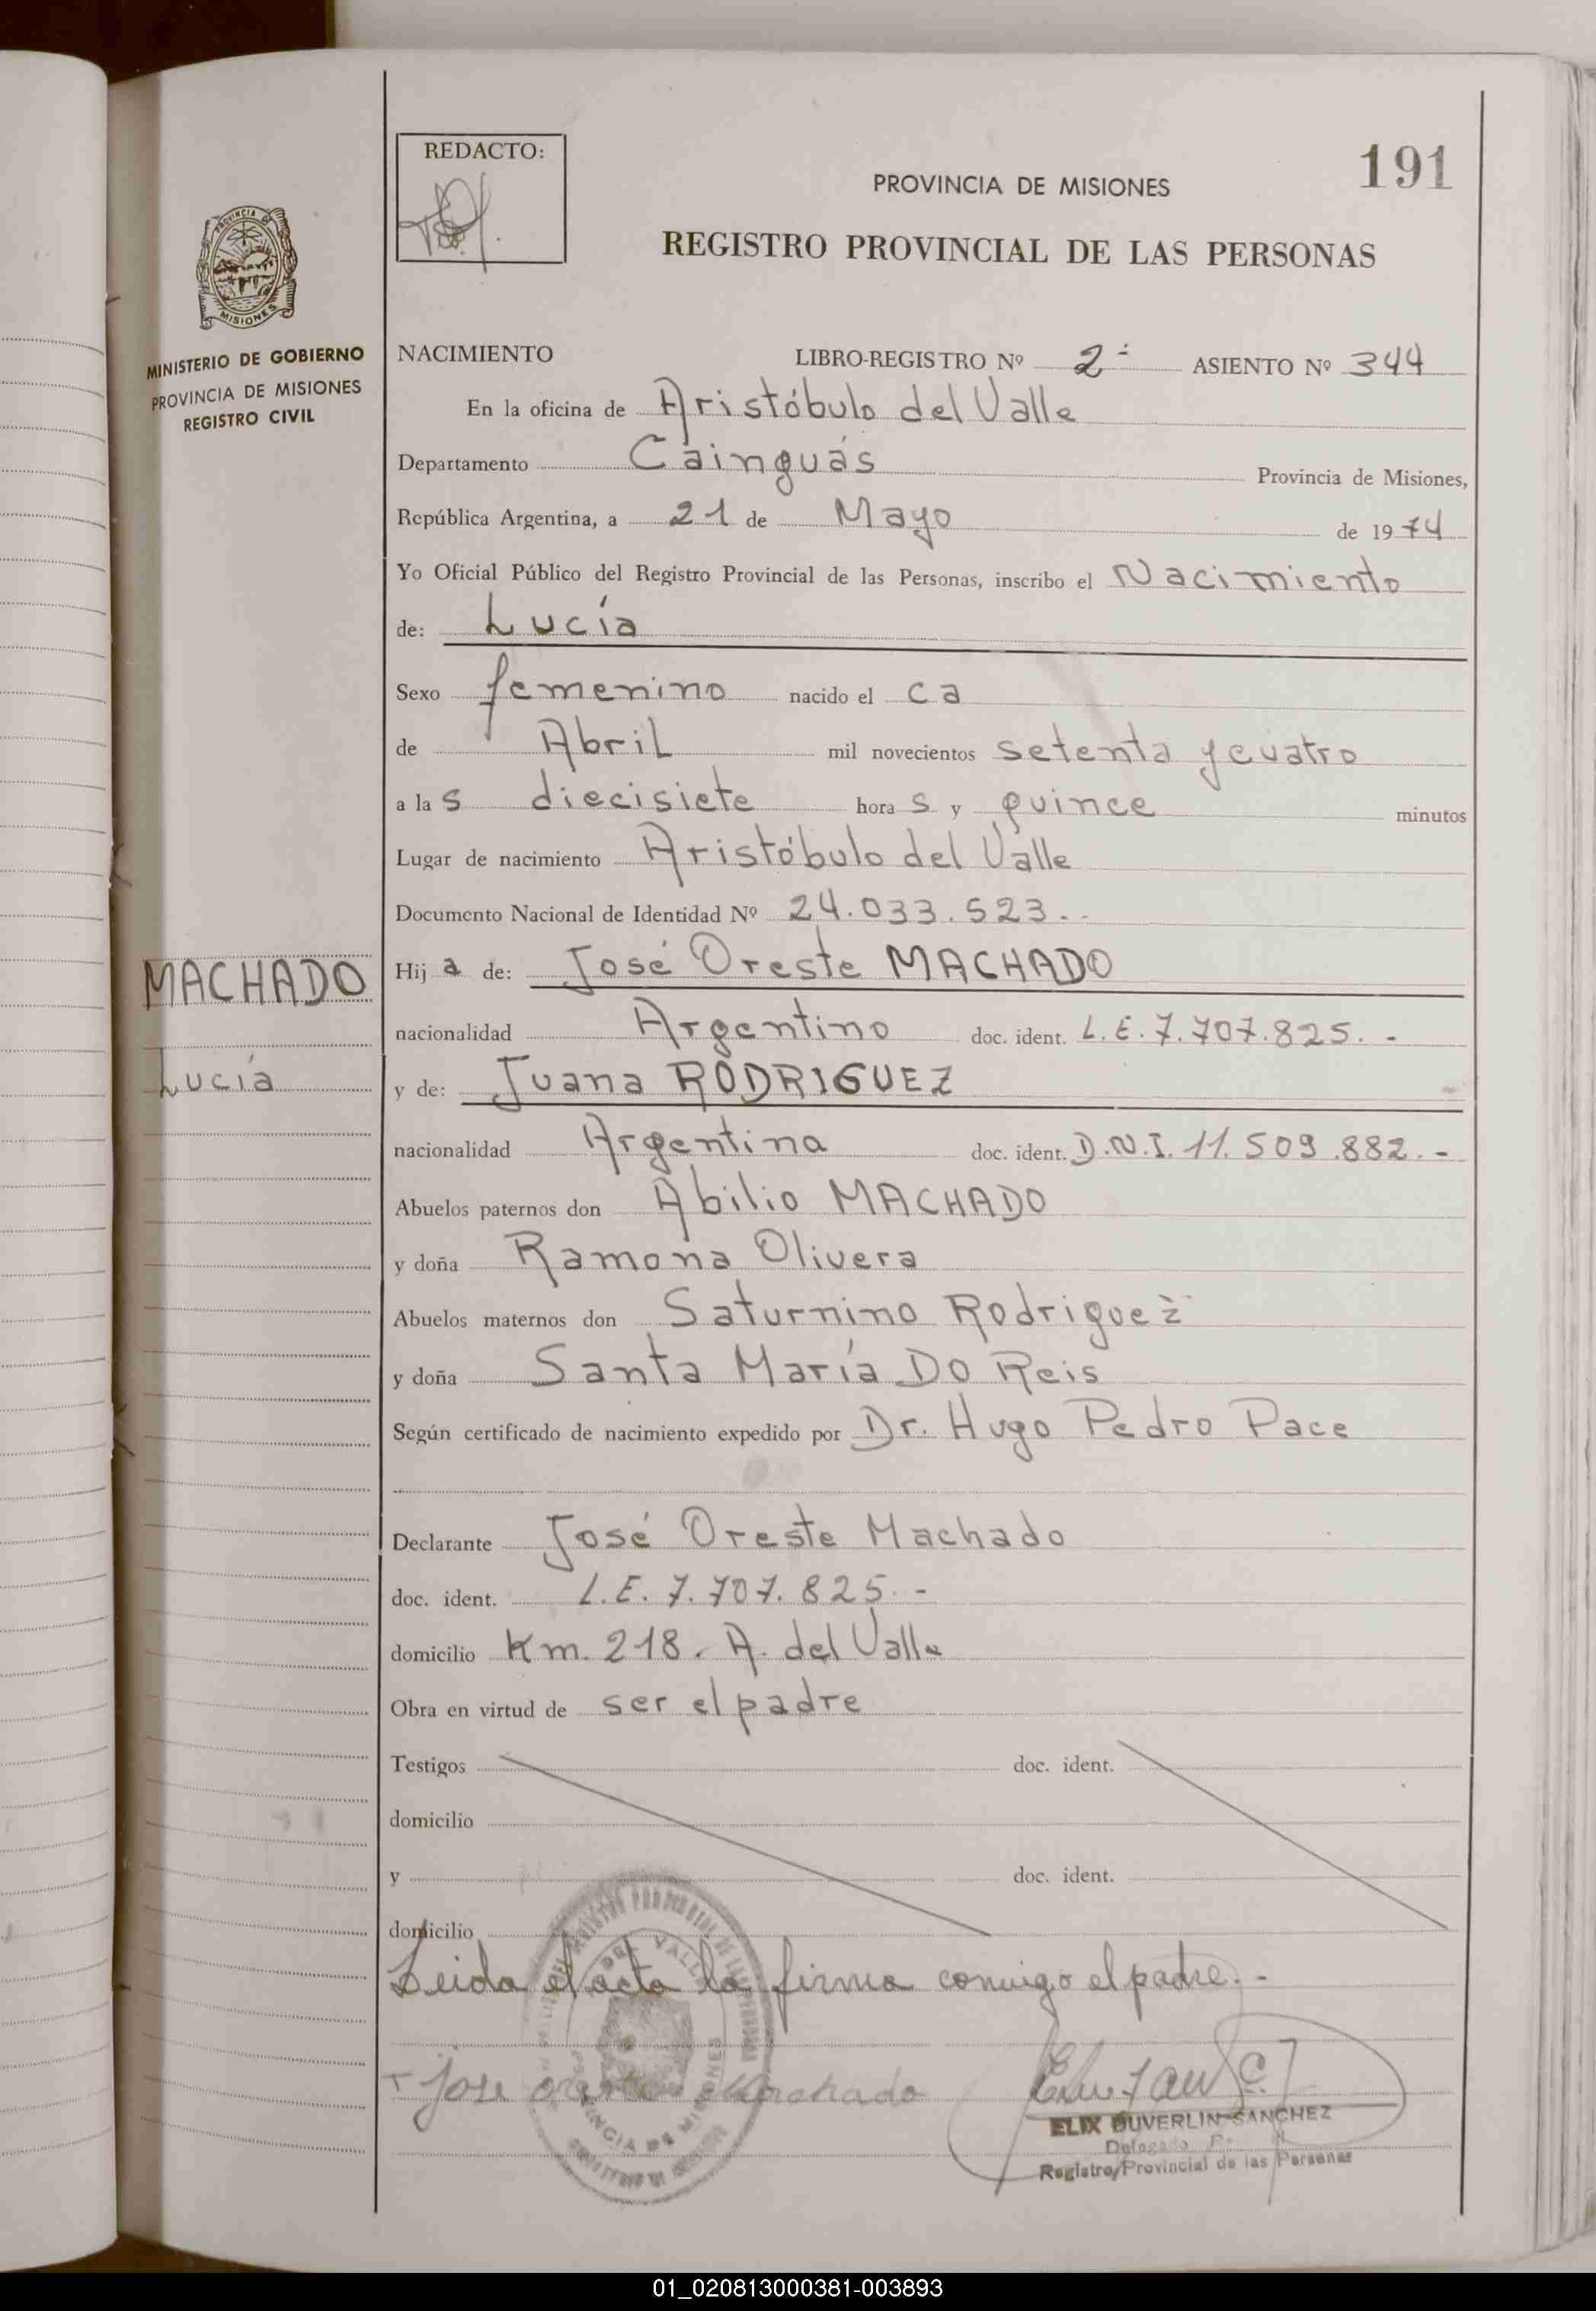 191
REDACTO:
PROVINCIA DE MISIONES
REGISTRO PROVINCIAL DE LAS PERSONAS
PROVINCIA DE
MISIONES
MINISTERIO DE GOBIERNO
PROVINCIA DE MISIONES
REGISTRO CIVIL
NACIMIENTO LIBRO-REGISTRO Nº 2- ASIENTO Nº 344
En la oficina de Aristóbulo del Valle
Departamento Cainguás Provincia de Misiones,
República Argentina, a 21 de Mayo de 1974
Yo Oficial Público del Registro Provincial de las Personas, inscribo el Nacimiento
de: Lucía
Sexo femenino nacido el ca
de Abril mil novecientos setenta y cuatro
a las diecisiete horas y quince minutos
Lugar de nacimiento Aristóbulo del Valle
Documento Nacional de Identidad Nº 24.033.523.-
MACHADO
Lucía
Hija de: José Oreste MACHADO
nacionalidad Argentino doc. ident. L.E. 7.707.825.-
y de: Juana RODRIGUEZ
nacionalidad Argentina doc. ident. D.N.I. 11.509.882.-
Abuelos paternos don Abilio MACHADO
y doña Ramona Olivera
Abuelos maternos don Saturnino Rodriguez
y doña Santa María DO Reis
Según certificado de nacimiento expedido por Dr. Hugo Pedro Pace
Declarante José Oreste Machado
doc. ident. L.E. 7.707.825.-
domicilio Km. 218. A. del Valle
Obra en virtud de ser el padre
Testigos doc. ident.
domicilio
y doc. ident.
domicilio
Leida el acta la firma conmigo el padre.-
jose oreste Machado
ELIX DUVERLIN SANCHEZ
Delegado
Registro Provincial de las Personas
01_020813000381-003893